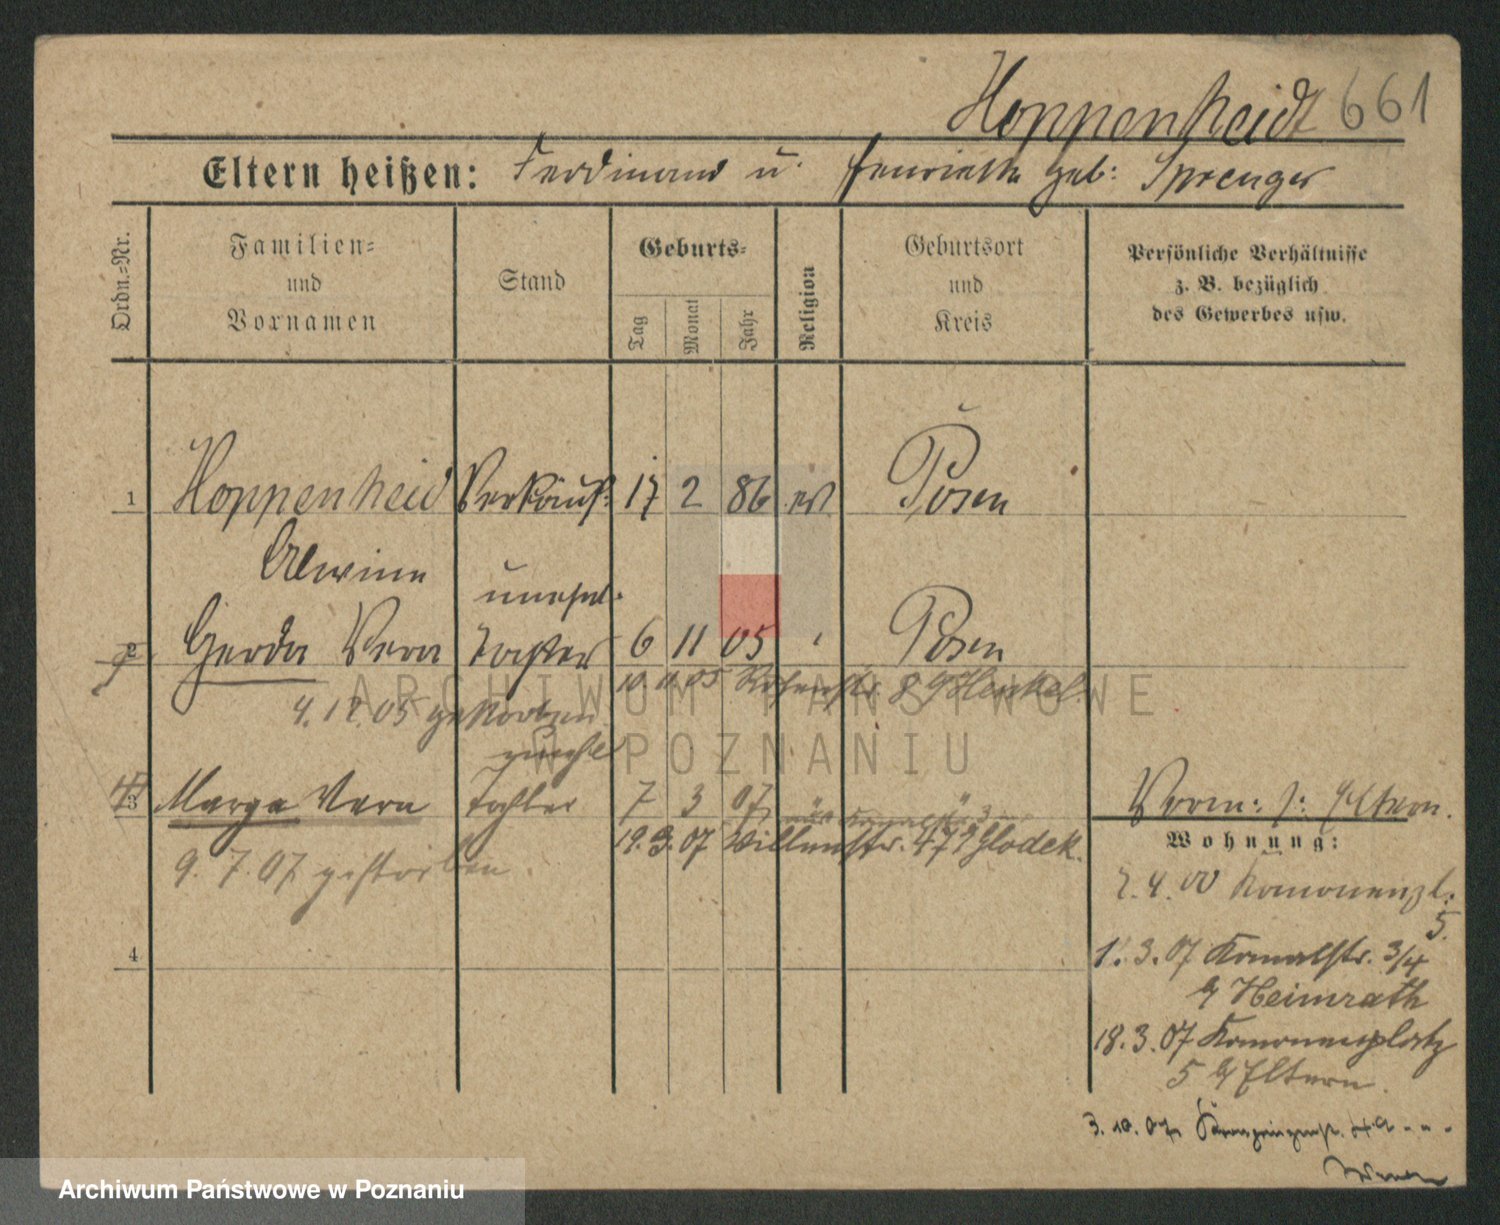 Hoppenheidt 661
Eltern heißen: Ferdinand u. Henriette geb: Sprenger
Ordn.=Nr.
Familien=
und
Vornamen
Stand
Geburts=
Tag
Monat
Jahr
Religion
Geburtsort
und
Kreis
Persönliche Verhältnisse
z. B. bezüglich
des Gewerbes usw.
1 Hoppenheid Verkäuf. 17 2 86 ev Posen
Alwine
unehel.
2 Gerda Vera Tochter 6 11 05 Posen
10. 11. 05 8 Henkel
4. 12. 05 gestorben
unehl
3 Marga Vera Tochter 7 3 07
Vorm: s: Eltern.
19. 3. 07 Glodek.
9. 7. 07 gestorben
Wohnung:
2. 4. 00
5.
4
1. 3. 07 Kanalstr. 3/4
b/ Heimrath
18. 3. 07
5 b/ Eltern.
3. 10. 07
ARCHIWUM PAŃSTWOWE
W POZNANIU
Archiwum Państwowe w Poznaniu